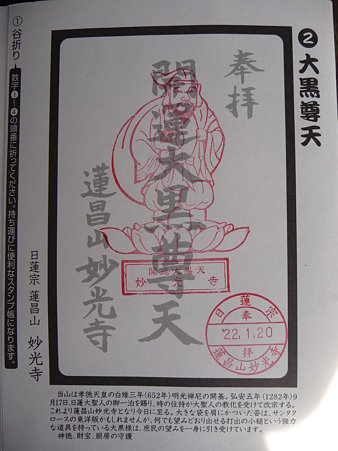 ❷大黒尊天
奉拝
開運大黒尊天
蓮昌山 妙光寺
開運大黒天
妙光寺
日蓮宗
奉
'22.1.20
拝
蓮昌山妙光寺
①谷折り
数字①〜④の順番に折ってください。持ち運びに便利なスタンプ帳になります。
日蓮宗 蓮昌山 妙光寺
当山は孝徳天皇の白雉三年(652年)明光禅尼の開基。弘安五年(1282年)9
月17日、日蓮大聖人の御一泊を賜り、時の住持が大聖人の教化を受けて改宗する。
これより蓮昌山妙光寺となり今日に至る。大きな袋を肩にかついだ姿は、サンタク
ロースの東洋版かもしれませんが、何でも望みどおり出せる打出の小槌という強力
な道具を持っている大黒様は、庶民の望みを一身に引き受けています。
神徳、財宝、厨房の守護